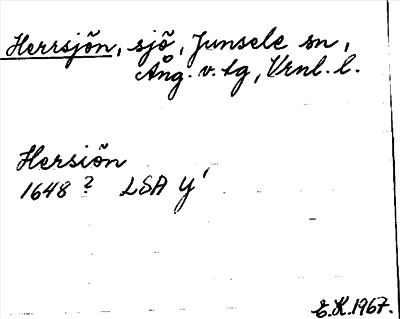 Herrsjön, sjö, Junsele sn,
Ång. v. tg, Vrnl. l.
Hersiön
1648 ? LSA Y'
E.K. 1967.